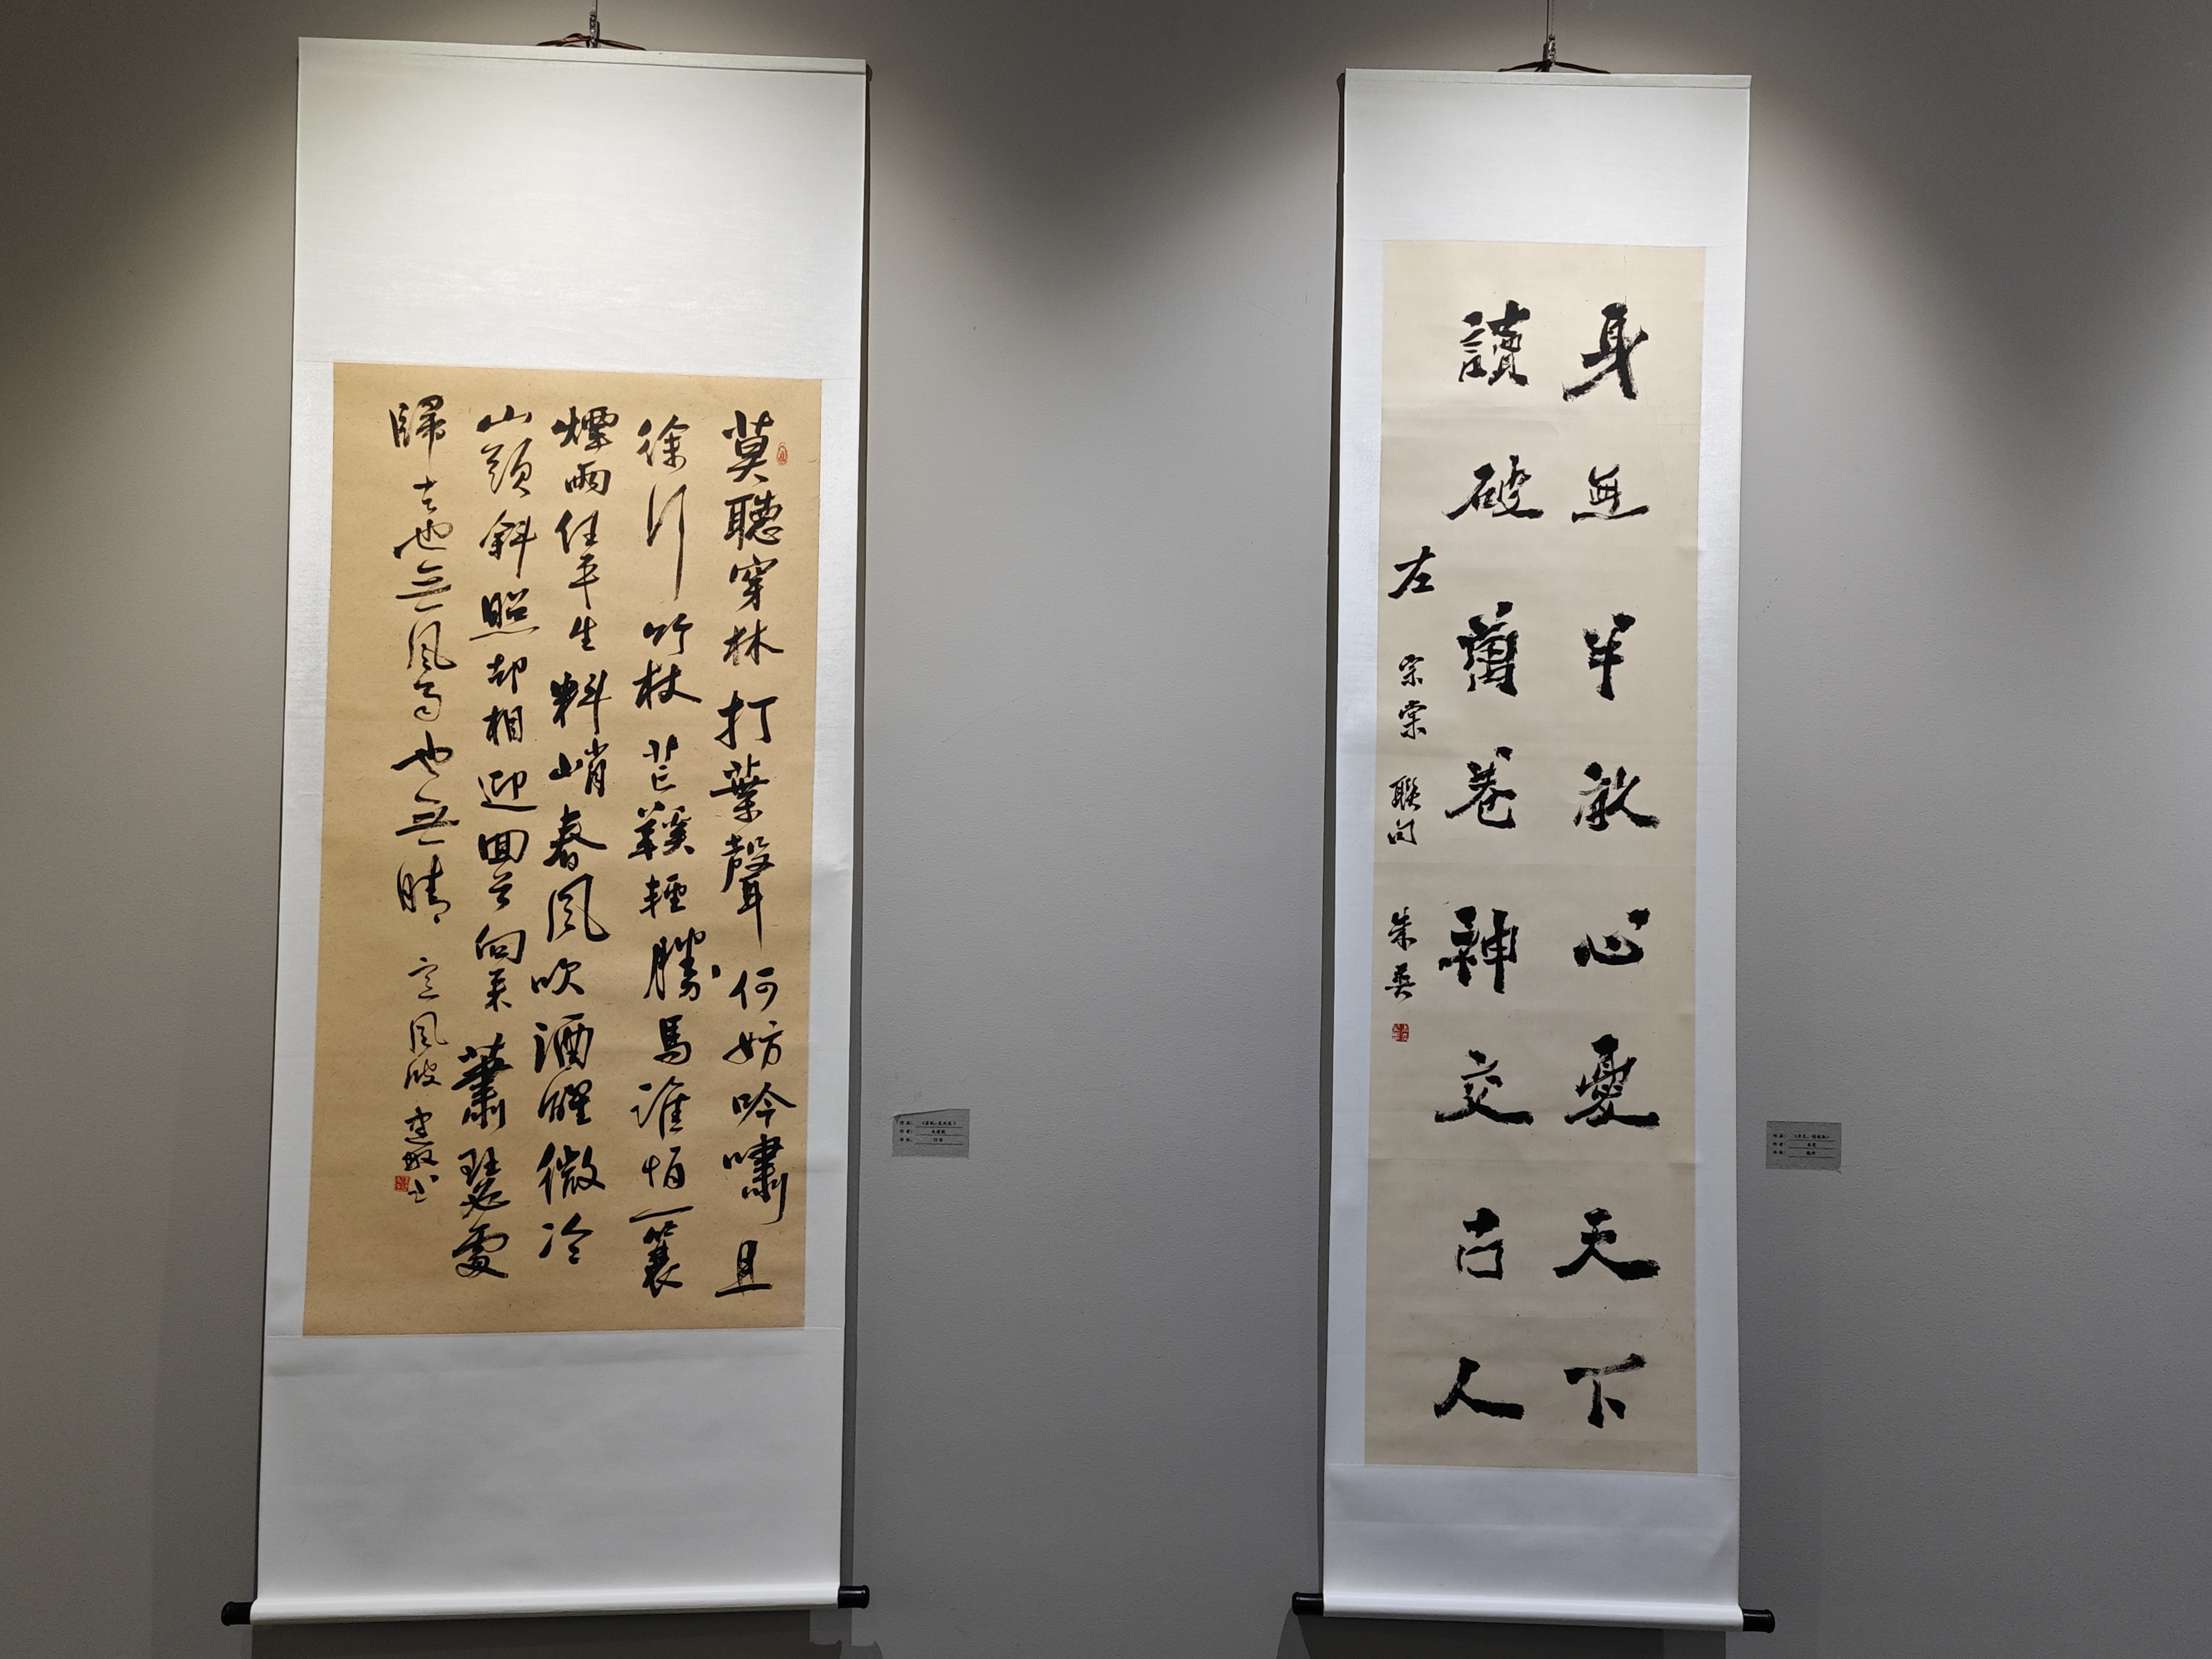 莫聽穿林打葉聲何妨吟嘯且
徐行竹杖芒鞵輕勝馬誰怕一蓑
煙雨任平生料峭春風吹酒醒微冷
山頭斜照却相迎回首向來蕭瑟處
歸去也無風雨也無晴 定風波
身無半畝心憂天下
讀破萬卷神交古人
左宗棠聯句